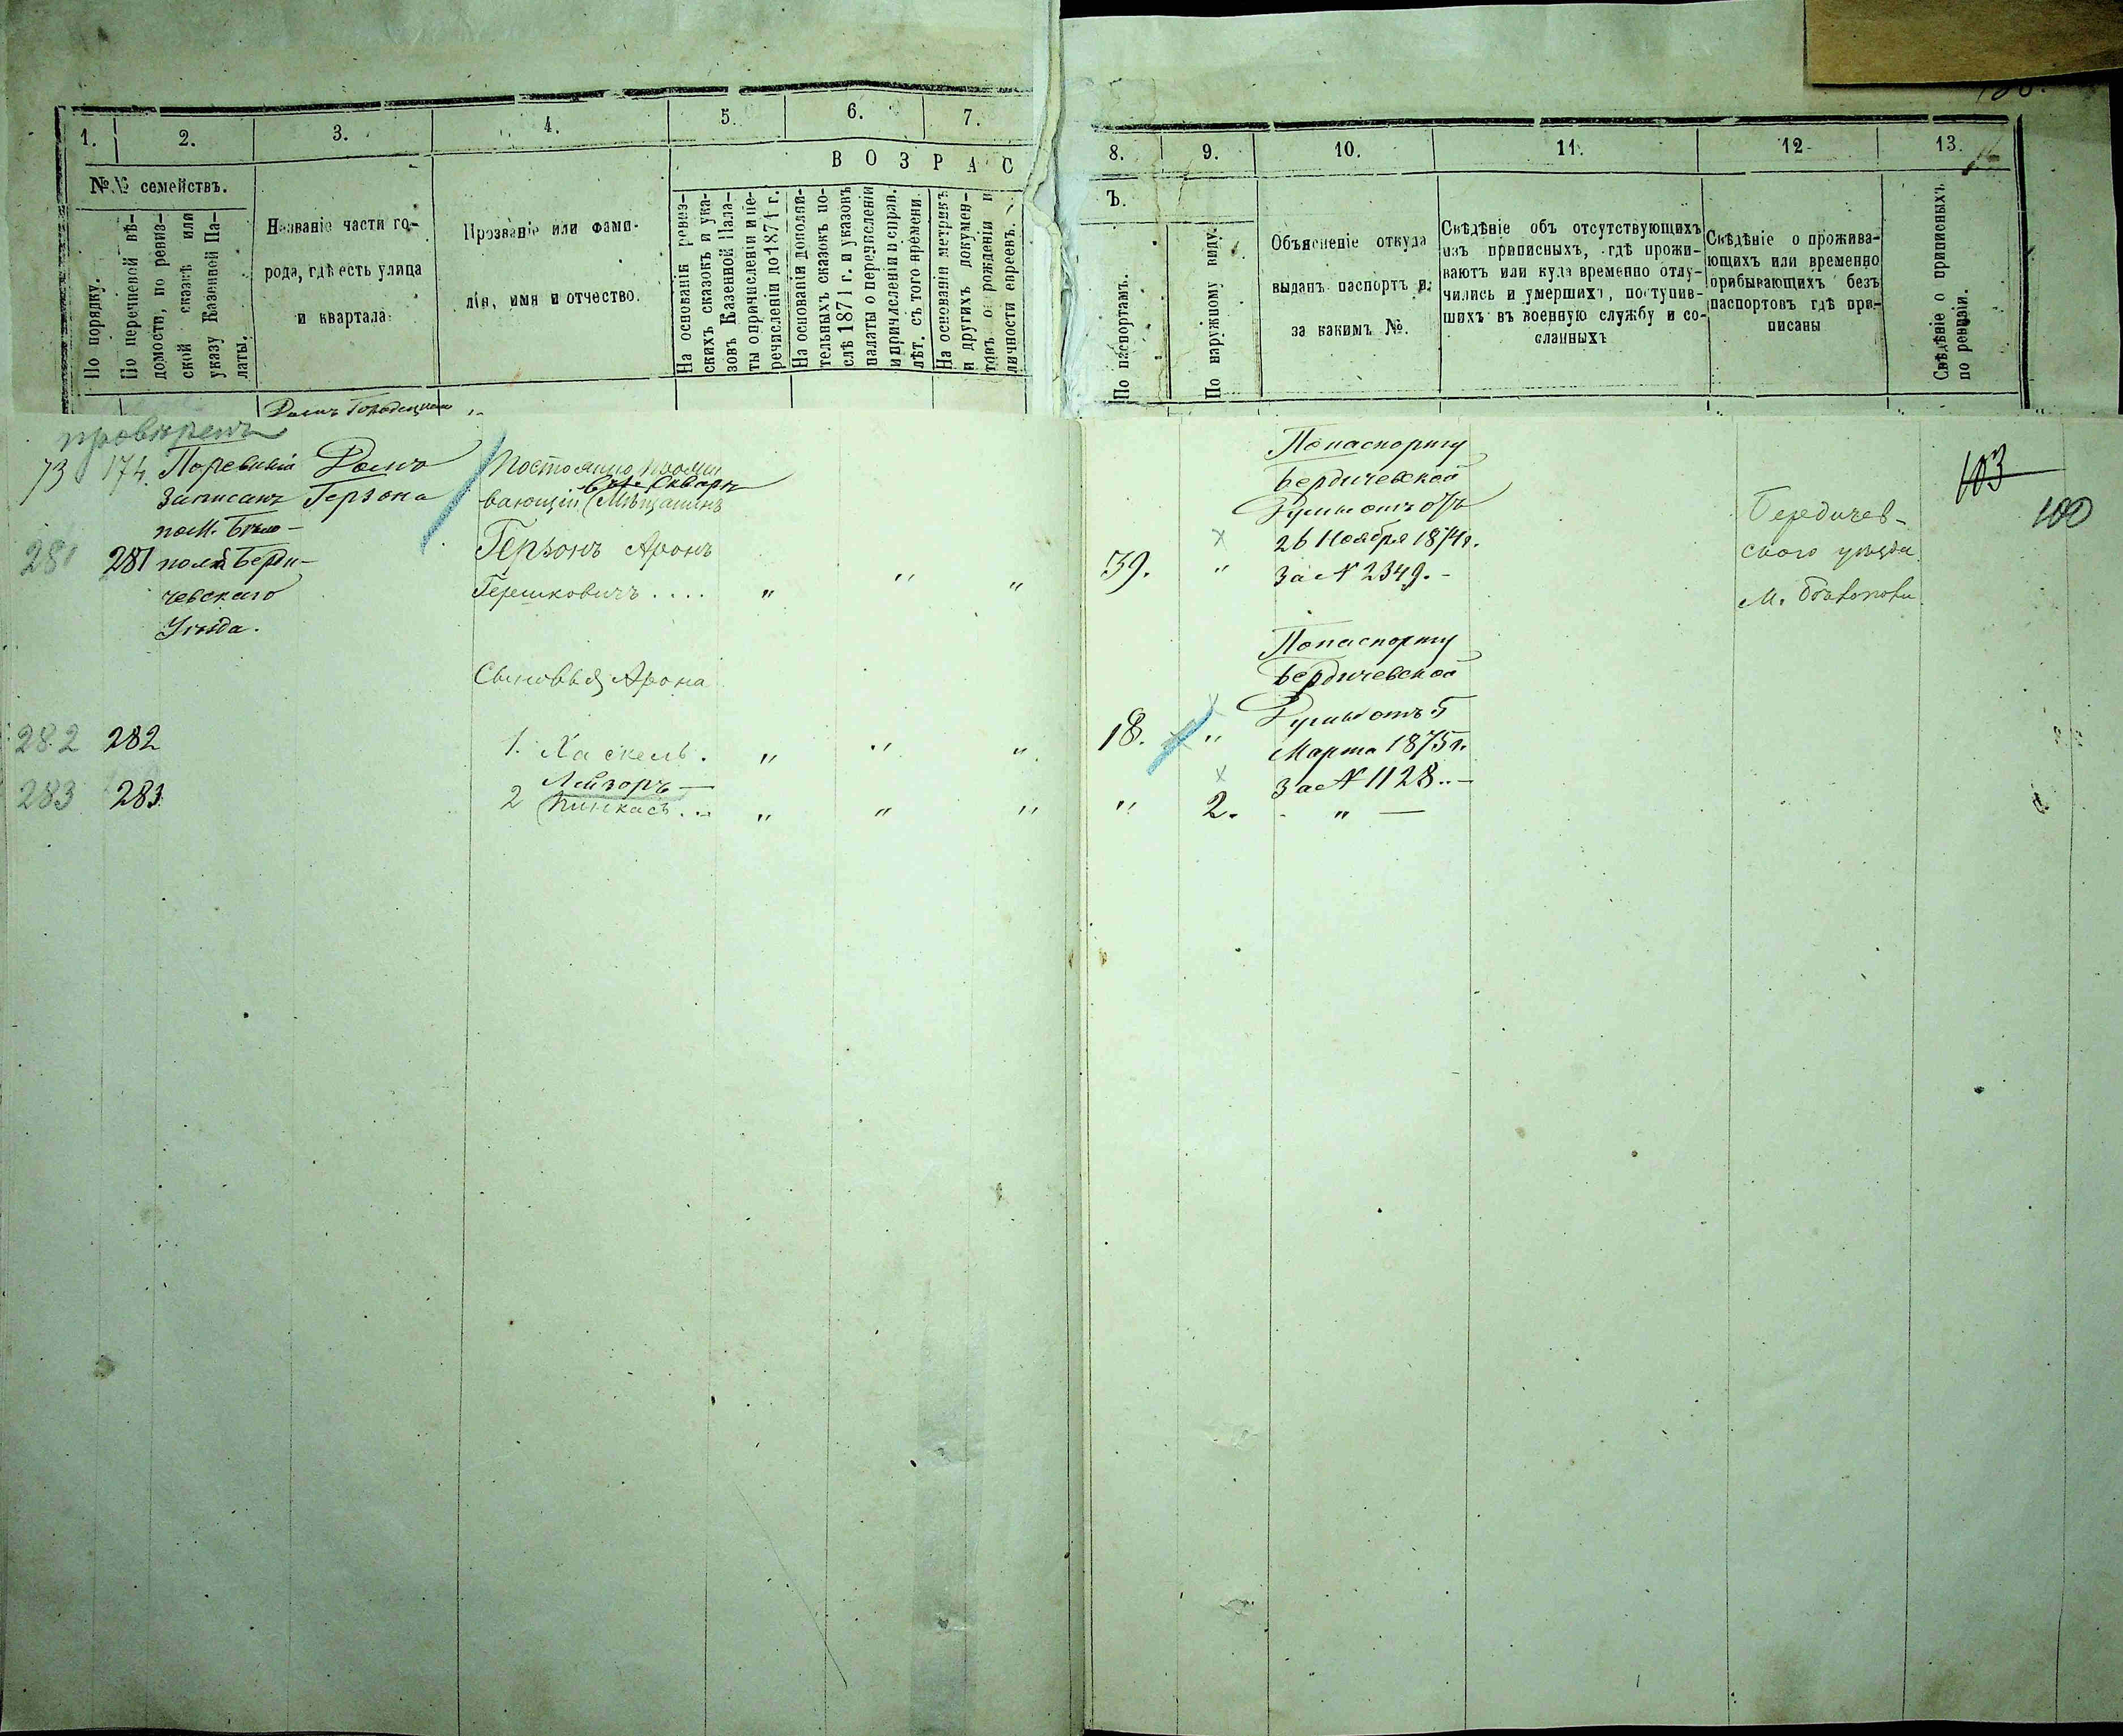 1.
2.
3.
4.
5.
6.
7.
8.
9.
10.
11.
12
13.
№№ семействъ.
По порядку.
По перечневой вѣ-
домости, по ревиз-
ской сказкѣ или
указу Казенной Па-
латы.
Названіе части го-
рода, гдѣ есть улица
и квартала.
Прозваніе или фами-
лія, имя и отчество.
ВОЗРАС
Ъ.
На основаніи ревиз-
скихъ сказокъ и ука-
зовъ Казенной Пала-
ты о причисленіи и пе-
речисленіи до 1871 г.
На основаніи дополни-
тельныхъ сказокъ по-
слѣ 1871 г. и указовъ
палаты о перечисленіи
и причисленіи и справ.
лѣт. съ того времени.
На основаніи метрикъ
и другихъ докумен-
товъ о рожденіи и
личности евреевъ.
По паспортамъ.
По наружному виду.
Объясненіе откуда
выданъ паспортъ и
за какимъ №.
Свѣдѣніе объ отсутствующихъ
изъ приписныхъ, гдѣ прожи-
ваютъ или куда временно отлу-
чились и умершихъ, поступив-
шихъ въ военную службу и со-
сланныхъ
Свѣдѣніе о прожива-
ющихъ или временно
прибывающихъ безъ
паспортовъ гдѣ при-
писаны
Свѣдѣніе о приписныхъ
по ревизіи.
Домъ Городецкаго
провѣренъ
73 174. Поревизіи Домъ
записанъ Герзона
по М. Бѣло-
281 281 полкѣ Берди-
чевскаго
Уѣзда.
Постоянно прожи
вающій Мѣщанинъ
въ м. Сквирѣ
Герзонъ Аронъ
Гершковичъ .... " " "
Сыновья Арона
282 282 1. Хаскель. " " "
Лейзоръ —
283 283 2 Пинкасъ. " " "
Попаспорту
Бердичевской
Думы отъ
26 Ноября 1874 г.
39. " За № 2349. -
Попаспорту
Бердичевской
Думы отъ 5
18. " Марта 1875 г.
За № 1128. -
" 2. " —
Бердичев-
скаго уѣзда
М. Бѣлополи
103
100